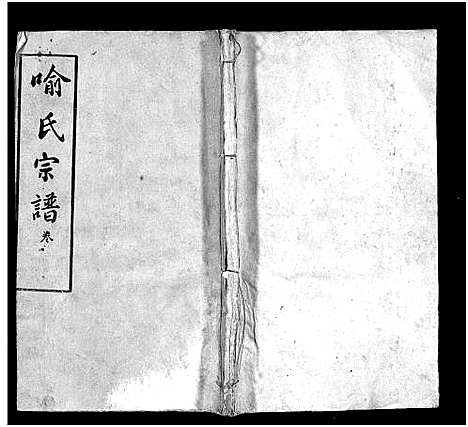 喻氏宗譜 卷